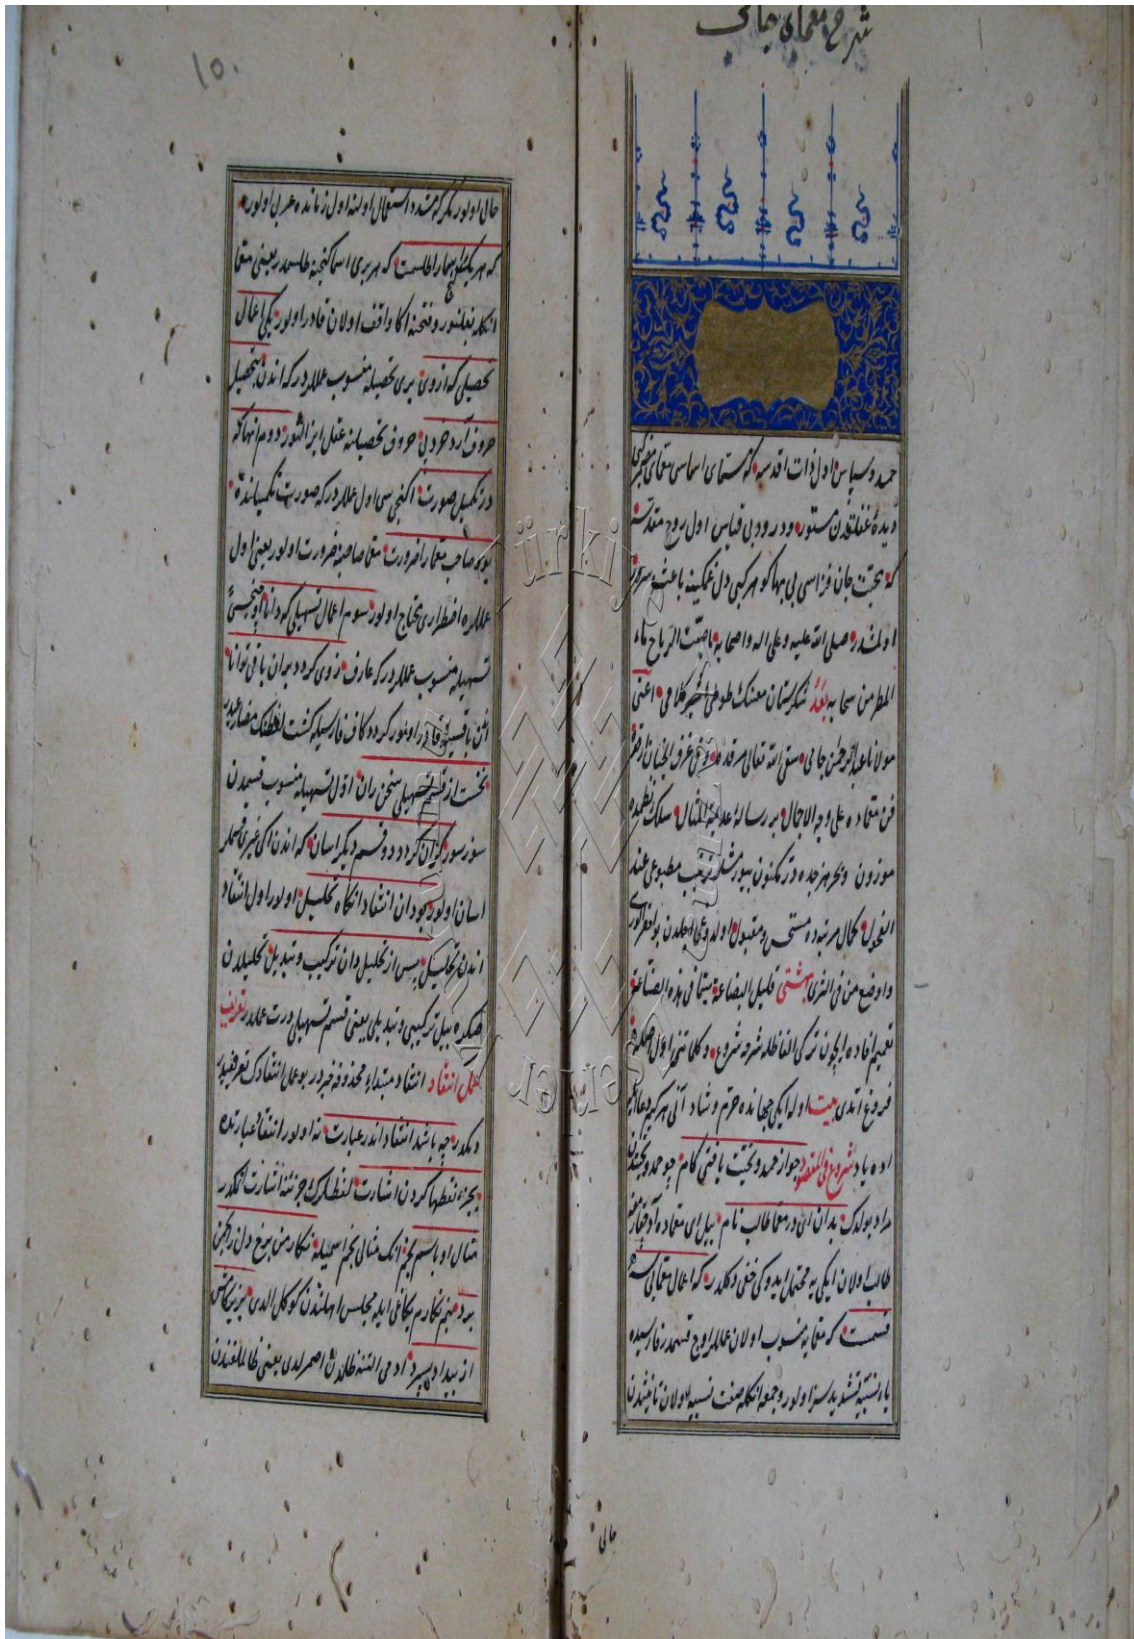 شرح معمای جامی
حمد و سپاس اول ذات اقدسه که مسمای اسماسی معمای
دیدهٔ غفلتدن مستور و درود بی قیاس اول روح مقدسه
که محبت جان فزاسی بی بها کوهر کبی دل غمکینه باعث سرور
اولمشدر صلی الله علیه و علی اله و اصحابه ما صبت الریاح ماء
المطر من سحابه بعد شکرستان معننک طوطی کلامی اعنی
مولانا عبد الرحمن جامی سقی الله تعالی مرقده و فی غرف الجنان
فن معماده علی وجه الاجمال بر رساله عدیمة المثال سلک نظمده
موزون و بحر هزجده در مکنون بیورمشلر ترتیب مطبوعی عند
الفحول کمال مرتبده مستحسن و مقبول اولدوغی اجلدن بو احقر الوری
و اوضع من فی الثری مشتی قلیل البضاعة سیما فی هذه الصناعة
تعمیم افاده ایچون ترکی الفاظله شرحه شروع و کلماتنی اول
فروغ اتدی بیت اوله ایکی جهانده خرم و شاد آنی هر کیم دعا ایله
ایده یاد شروع فی المقصود چو از حمد و تحیت یافتی کام چو حمد و تحیتدن
مراد بولدک بدان ای در معما طالب نام بیل ای معماده آد
طالب اولان ایکی یه محتمل ایدوکی خفی دکلدر که اعمال معمایی سه
قسمست که معمایه منسوب اولان عمللر اوج قسمدر فارسیده
یاء نسبت تشدیدسز اولور و جمعه انکله صفت نسبیه اولان تانیثدن
خالی
خالی اولور مکر که مشدد استعمال اولنه اول زمانده عربی اولور
که هر یک کنج اسما را طلسمست که هر بری اسما کنجنه طلسمدر یعنی معما
انکله بغلنور و فتحنه اکا واقف اولان قادر اولور یکی اعمال
تحصیلی که از وی بری تحصیله منسوب عمللردر که اندن تحصیل
حروف آرد خرد پی حروف تحصیلنه عقل ایز التور دوم انها که
در تکمیل صورت اکنجی سی اول عمللردر که صورت تکمیلنده
بود صاحب معما را ضرورت معما صاحبنه ضرورت اولور یعنی اول
عمللره اضطراری محتاج اولور سوم اعمال تسهیلی که دانا اوچنجسی
تسهیله منسوب عمللردر که عارف ز وی کردد بران باقی توانا
اندن باقیسنه قادر اولور کردد کاف فارسیله کشت لفظنک مضارعیدر
نخست از قسم تسهیلی سخن ران اول تسهیله منسوب قسمدن
سوز سور کزان کردد دو قسم دیکر اسان که اندن اکی غیری قسملر
اسان اولور بود ان انتقاد انکاه تحلیل اولور اول انتقاد
اندن تحلیل پس از تحلیل دان ترکیب و تبدیل تحلیلدن
صکره بیل ترکیبی و تبدیلی یعنی قسم تسهیلی درت عملدر تعریف
عمل انتقاد انتقاد مبتداء محذوفه خبردر بو عمل انتقادک تعریفیدر
دیمکدر چه باشد انتقاد اندر عبارت نه اولور انتقاد عبارتده
بجزء لفظها کردن اشارت لفظلرک جزئنه اشارت اتمکدر
مثال او باسم نجم انک مثالی نجم اسمیله نکار من بزغ دل ز انجمن
برد منم نکارم ایله مجلس اهلندن کوکل الدی
از بیداد سپرد ادمی التنه ظلمدن اصمرلدی یعنی ظالملغندن